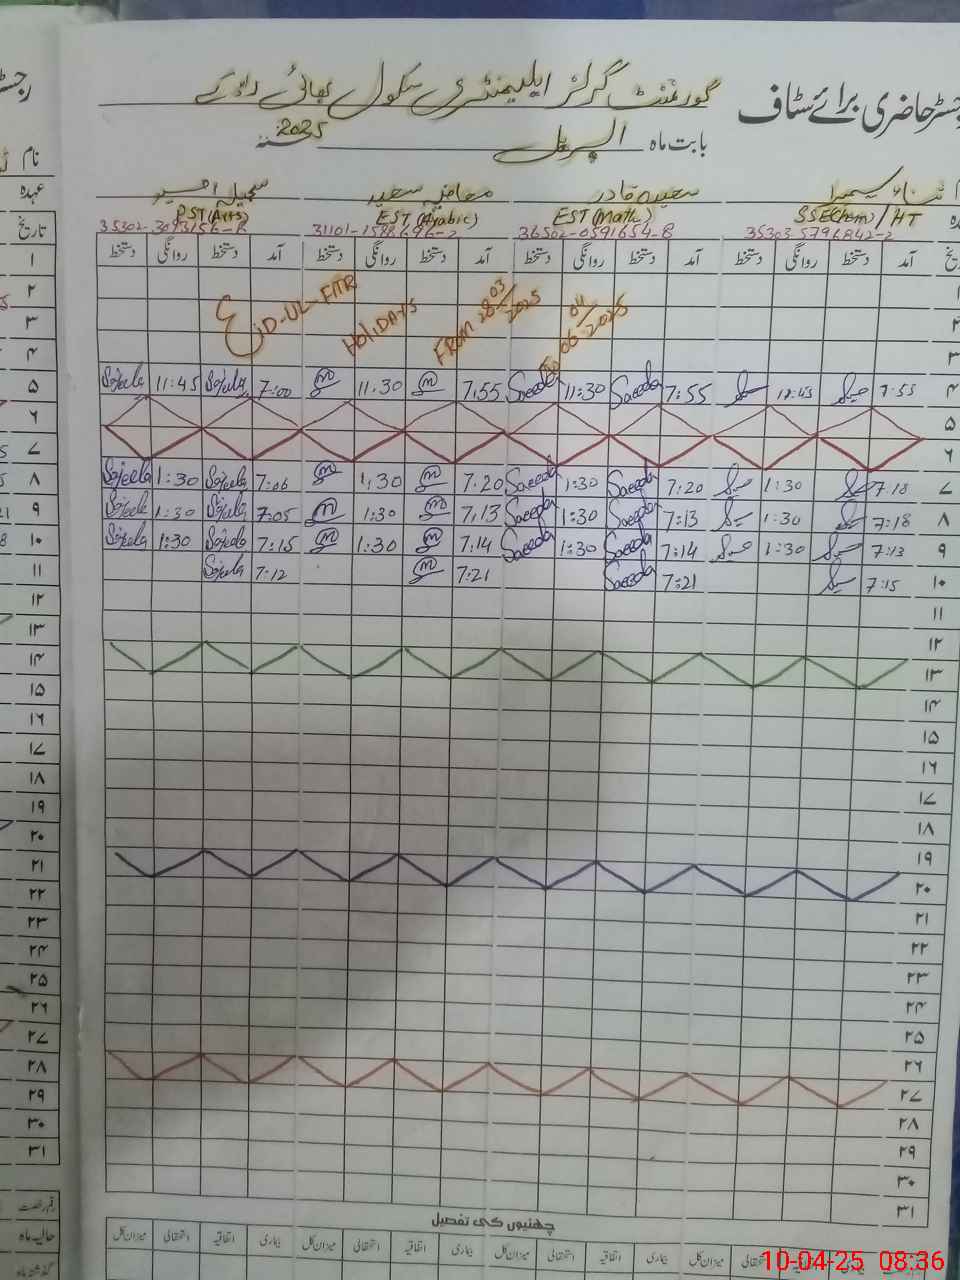 رجسٹر حاضری برائے سٹاف
گورنمنٹ گرلز ایلیمنٹری سکول بھائی
بابت ماہ اپریل 2025
سعیدہ قادر
معافیہ سعید
سجیلہ
SSE(Chem)/HT
EST(Math)
EST(Arabic)
PST(Arts)
35303-5796842-2
36502-0591654-8
31101-1588696-2
تاریخ آمد دستخط روانگی دستخط آمد دستخط روانگی دستخط آمد دستخط روانگی دستخط آمد دستخط روانگی دستخط
۱
۲
EID-UL-FITR
HOLIDAYS
FROM 28 03/2025
To 06 04/2025
۳
۴ 7:55 11:45 7:55 Saeeda 11:30 Saeeda 7:55 11:30 7:00 Sajeela 11:45 Sajeela
۵
۶
۷ 7:18 1:30 7:20 Saeeda 1:30 Saeeda 7:20 1:30 7:06 Sajeela 1:30 Sajeela
۸ 7:18 1:30 7:13 Saeeda 1:30 Saeeda 7:13 1:30 7:05 Sajeela 1:30 Sajeela
۹ 7:13 1:30 7:14 Saeeda 1:30 Saeeda 7:14 1:30 7:15 Sajeela 1:30 Sajeela
۱۰ 7:15 7:21 Saeeda 7:21 7:12 Sajeela
۱۱
۱۲
۱۳
۱۴
۱۵
۱۶
۱۷
۱۸
۱۹
۲۰
۲۱
۲۲
۲۳
۲۴
۲۵
۲۶
۲۷
۲۸
۲۹
۳۰
۳۱
چھٹیوں کی تفصیل
بیماری اتفاقیہ استحقاقی میزان کل بیماری اتفاقیہ استحقاقی میزان کل بیماری اتفاقیہ استحقاقی میزان کل
10-04-25 08:36
نام
عہدہ
تاریخ
۱
۲
۳
۴
۵
۶
۷
۸
۹
۱۰
۱۱
۱۲
۱۳
۱۴
۱۵
۱۶
۱۷
۱۸
۱۹
۲۰
۲۱
۲۲
۲۳
۲۴
۲۵
۲۶
۲۷
۲۸
۲۹
۳۰
۳۱
قسم رخصت
حالیہ ماہ
گذشتہ ماہ